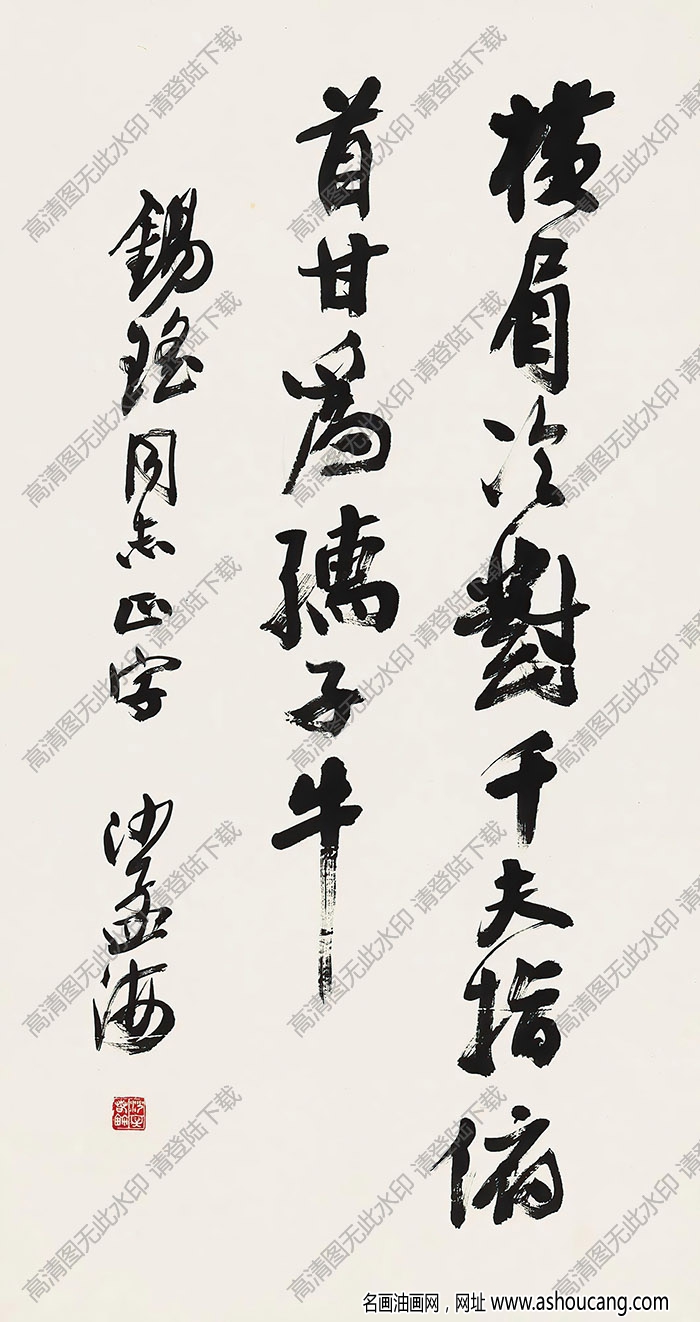 橫眉冷對千夫指俯
首甘為孺子牛
錫瑤同志正字 沙孟海
高清图无此水印 请登陆下载
名画油画网，网址 www.ashoucang.com